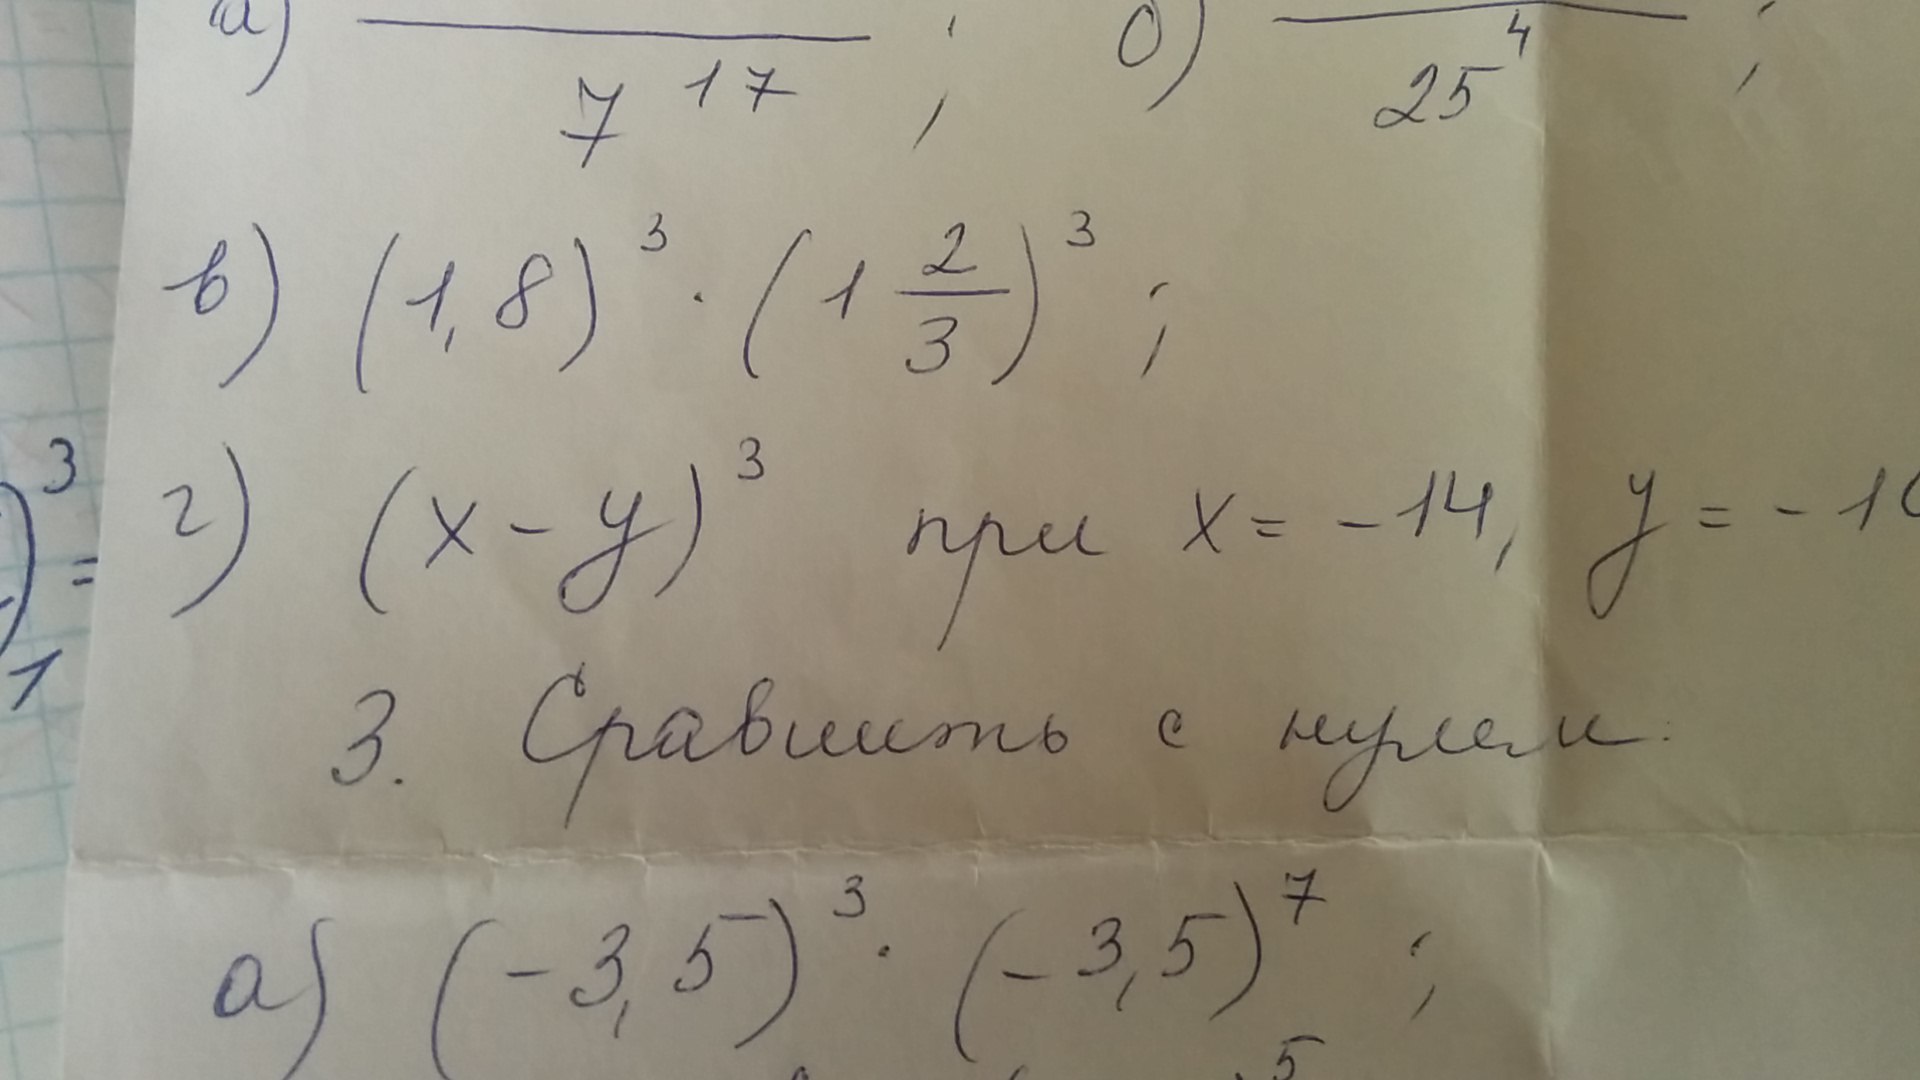 а) ————— / 7^17 ; б) ————— / 25^4 ;
в) (1,8)^3 · (1 2/3)^3 ;
)^3 = г) (x - y)^3 при x = -14, y = -1
1
3. Сравнить с нулем.
а) (-3,5)^3 · (-3,5)^7 ;
5